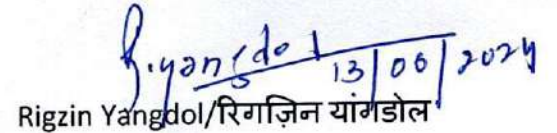 R.yangdol
13/06/2024
Rigzin Yangdol/रिगज़िन यांगडोल